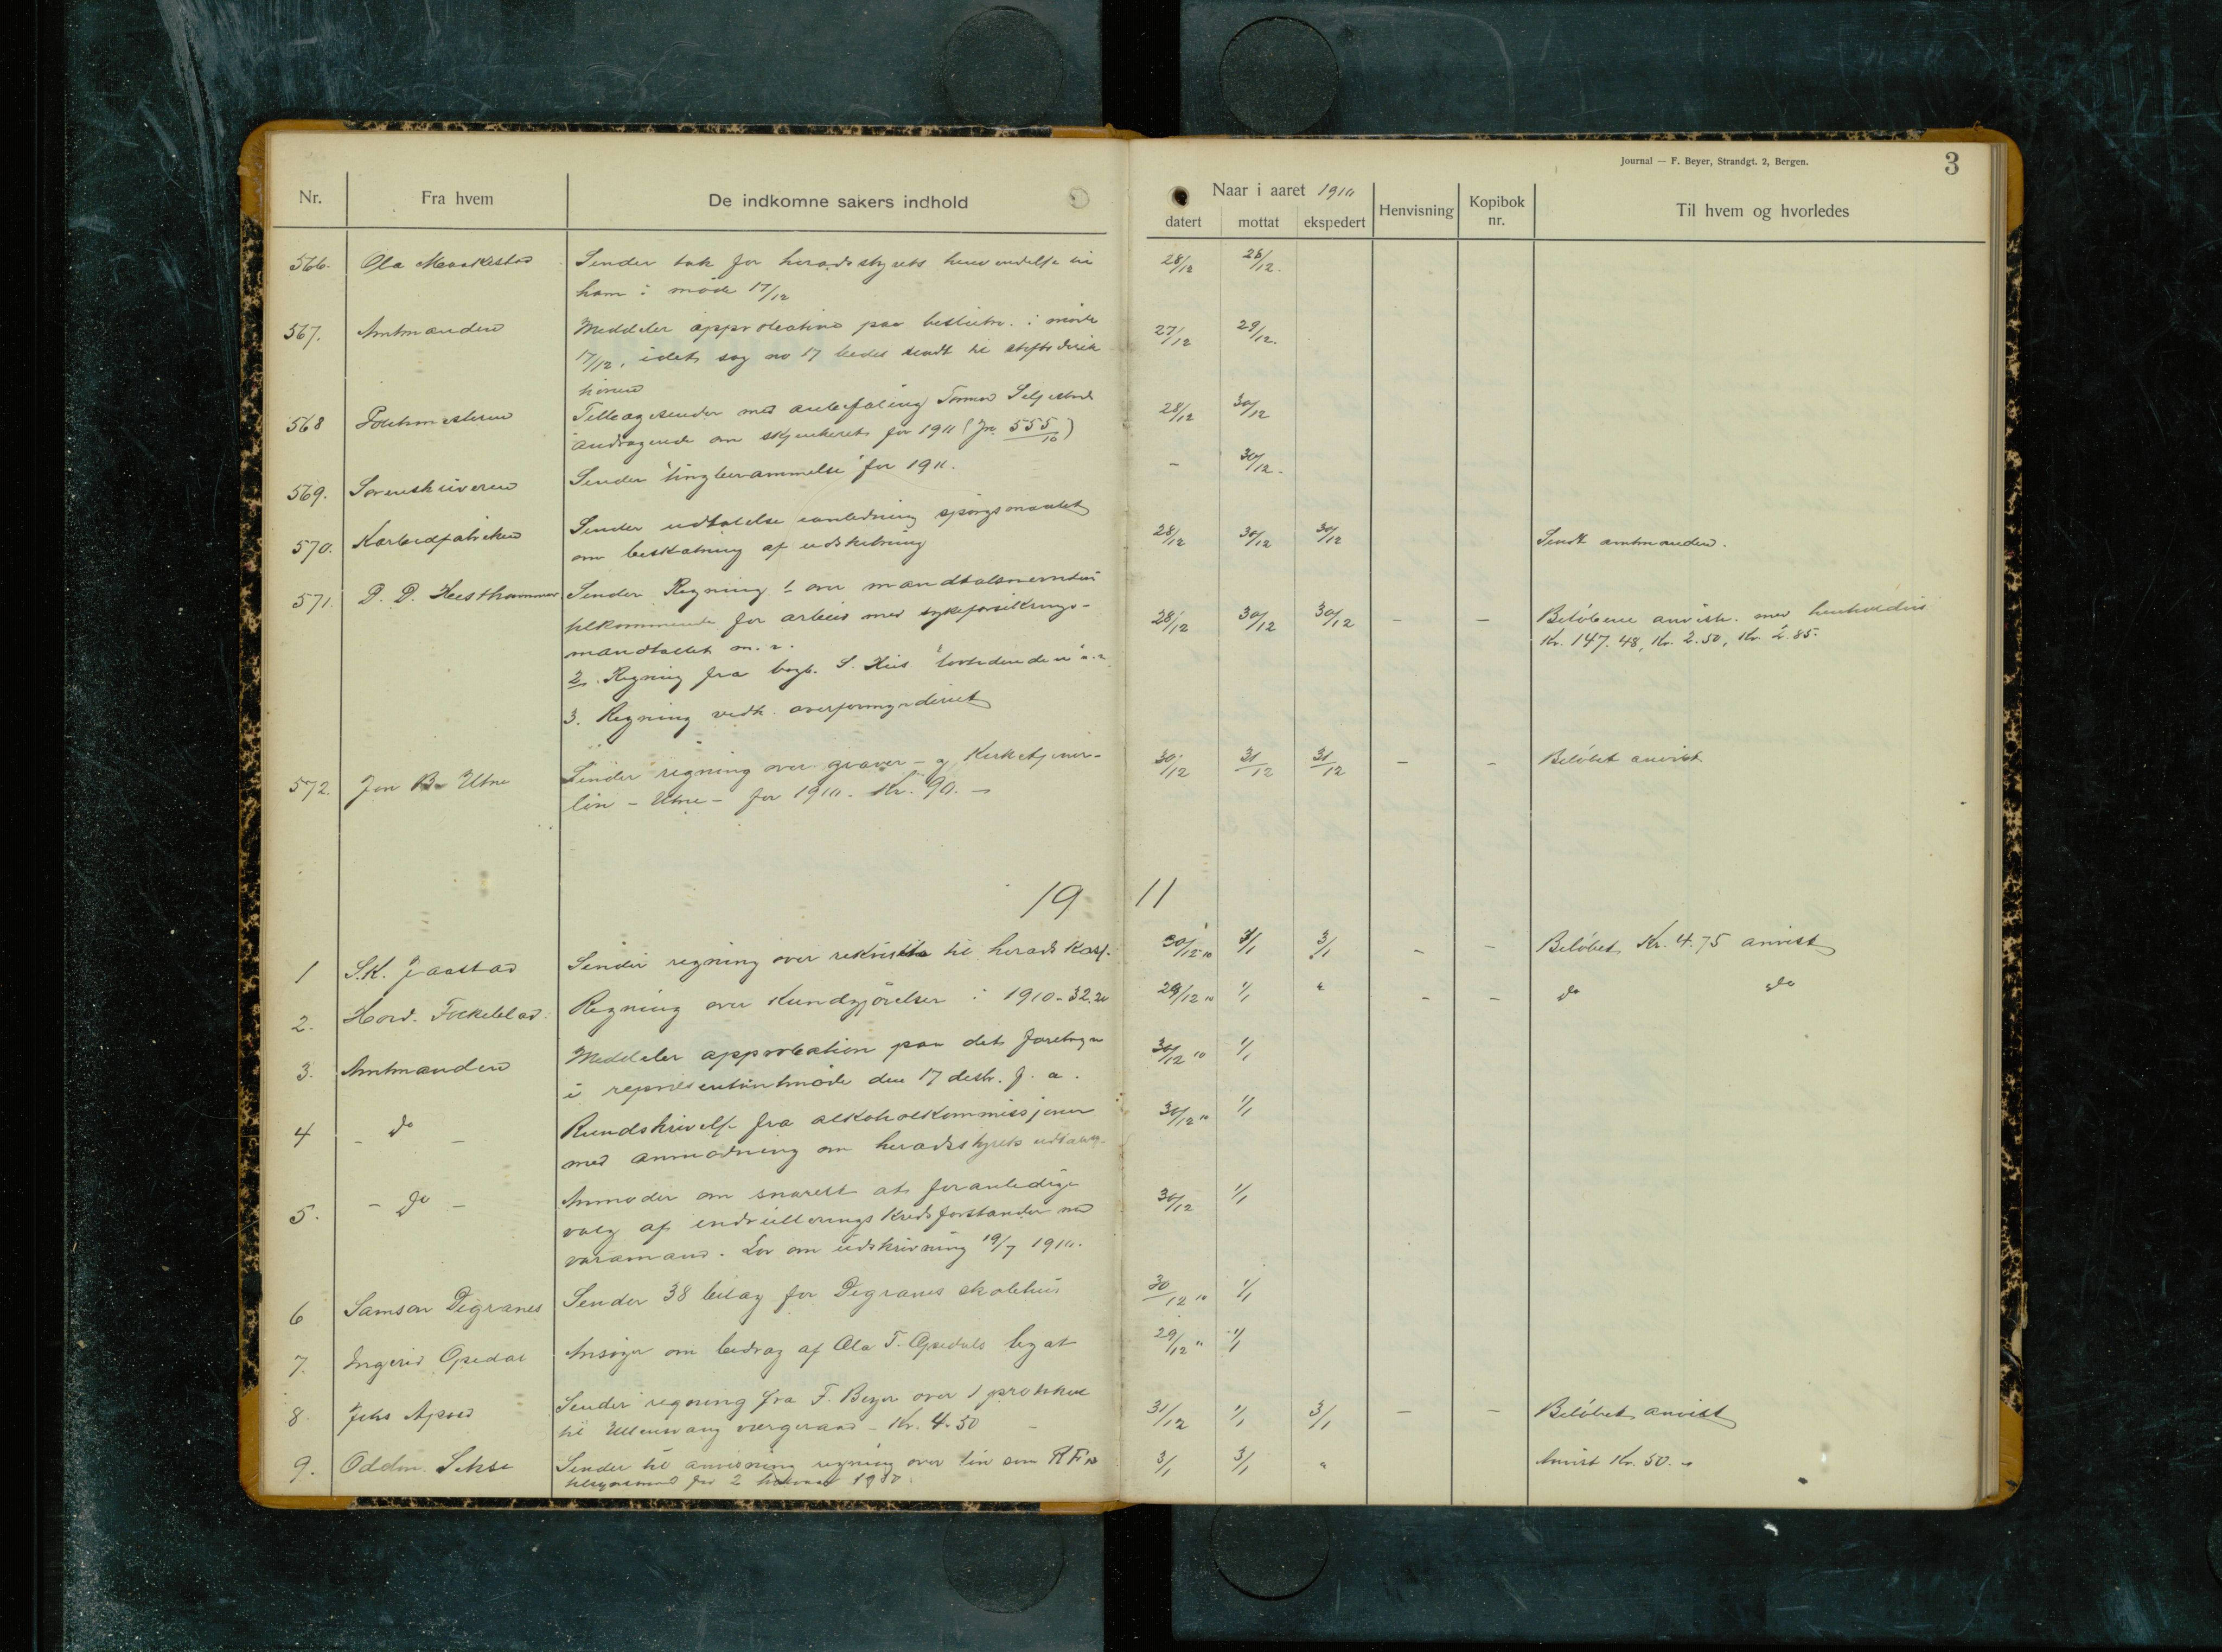 Journal — F. Beyer, Strandgt. 2, Bergen.
3
Nr. Fra hvem De indkomne sakers indhold Naar i aaret 1910 Henvisning Kopibok nr. Til hvem og hvorledes
datert mottat ekspedert
566. Ola Maakestad Sender tak for heradsstyrets henvendelse til 28/12 28/12.
ham i møde 17/12
567. Amtmanden Meddeler approbation paa beslutn. i møde 27/12 29/12.
17/12, idet sag no 17 bedes sendt til stiftsdirek
tionen
568 Politimesteren Tilbagesender med anbefaling Tormod Seljestads 28/12 30/12
andragende om skjenkeret for 1911 (Jn. 555/10)
569. Sorenskriveren Sender "tingberammelse" for 1911. – 30/12.
570. Karbidfabriken Sender udtalelse i anledning spørgsmaalet 28/12 30/12 30/12 Sendt amtmanden.
om beskatning af
571. D. D. Hesthammer Sender Regning 1 over mandtalsnevndens 28/12 30/12 30/12 – – Beløbene anvist med henholdsvis
tilkommende for arbeid med sykeforsikrings- Kr. 147.48, Kr. 2.50, Kr. 2.85.
mandtallet m. v.
2. Regning fra bogh. S. "Lovtidende"
3. Regning vedk. overformynderiet
572. Jon B. Utne Sender regning over graver- og Kirketjener- 30/12 31/12 31/12 – – Beløbet anvist
løn – Utne – for 1910. Kr. 90. –
1911
1 S.K. Jaastad Sender regning over rekvisita til heradskass. 30/12 10 3/1 3/1 – – Beløbet Kr. 4.75 anvist
2. Hord. Folkeblad Regning over Kundgjørelser i 1910 - 32.20 29/12 10 1/1 " – – do do
3. Amtmanden Meddeler approbation paa det foretagne 30/12 10 1/1
i representantmøde den 17 desbr. f. a.
4 – do – Rundskrivelse fra alkoholkommissjonen 30/12 10 1/1
med anmodning om heradsstyrets udtalelse
5. – do – Anmoder om snarest at foranledige 30/12 1/1
valg af indrulleringskredsforstander med
varamand. Lov om udskrivning 19/7 1910.
6 Samson Digranes Sender 38 bilag for Digranes skolehus 30/12 10 1/1
7. Ingerid Opedal Ansøger om bidrag af Ola T. Opedals legat 29/12 " 1/1
8. Johs Apold Sender regning fra F. Beyer over 1 protokol 31/12 1/1 3/1 – – Beløbet anvist
til Ullensvang vergeraad – Kr. 4.50 –
9. Oddm. Sekse Sender til anvisning regning over løn som 3/1 3/1 " Anvist Kr. 50. –
tilsynsmand for 2 halvaar 1910.